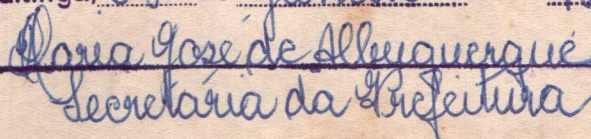 Maria José de Albuquerque
Secretária da Prefeitura